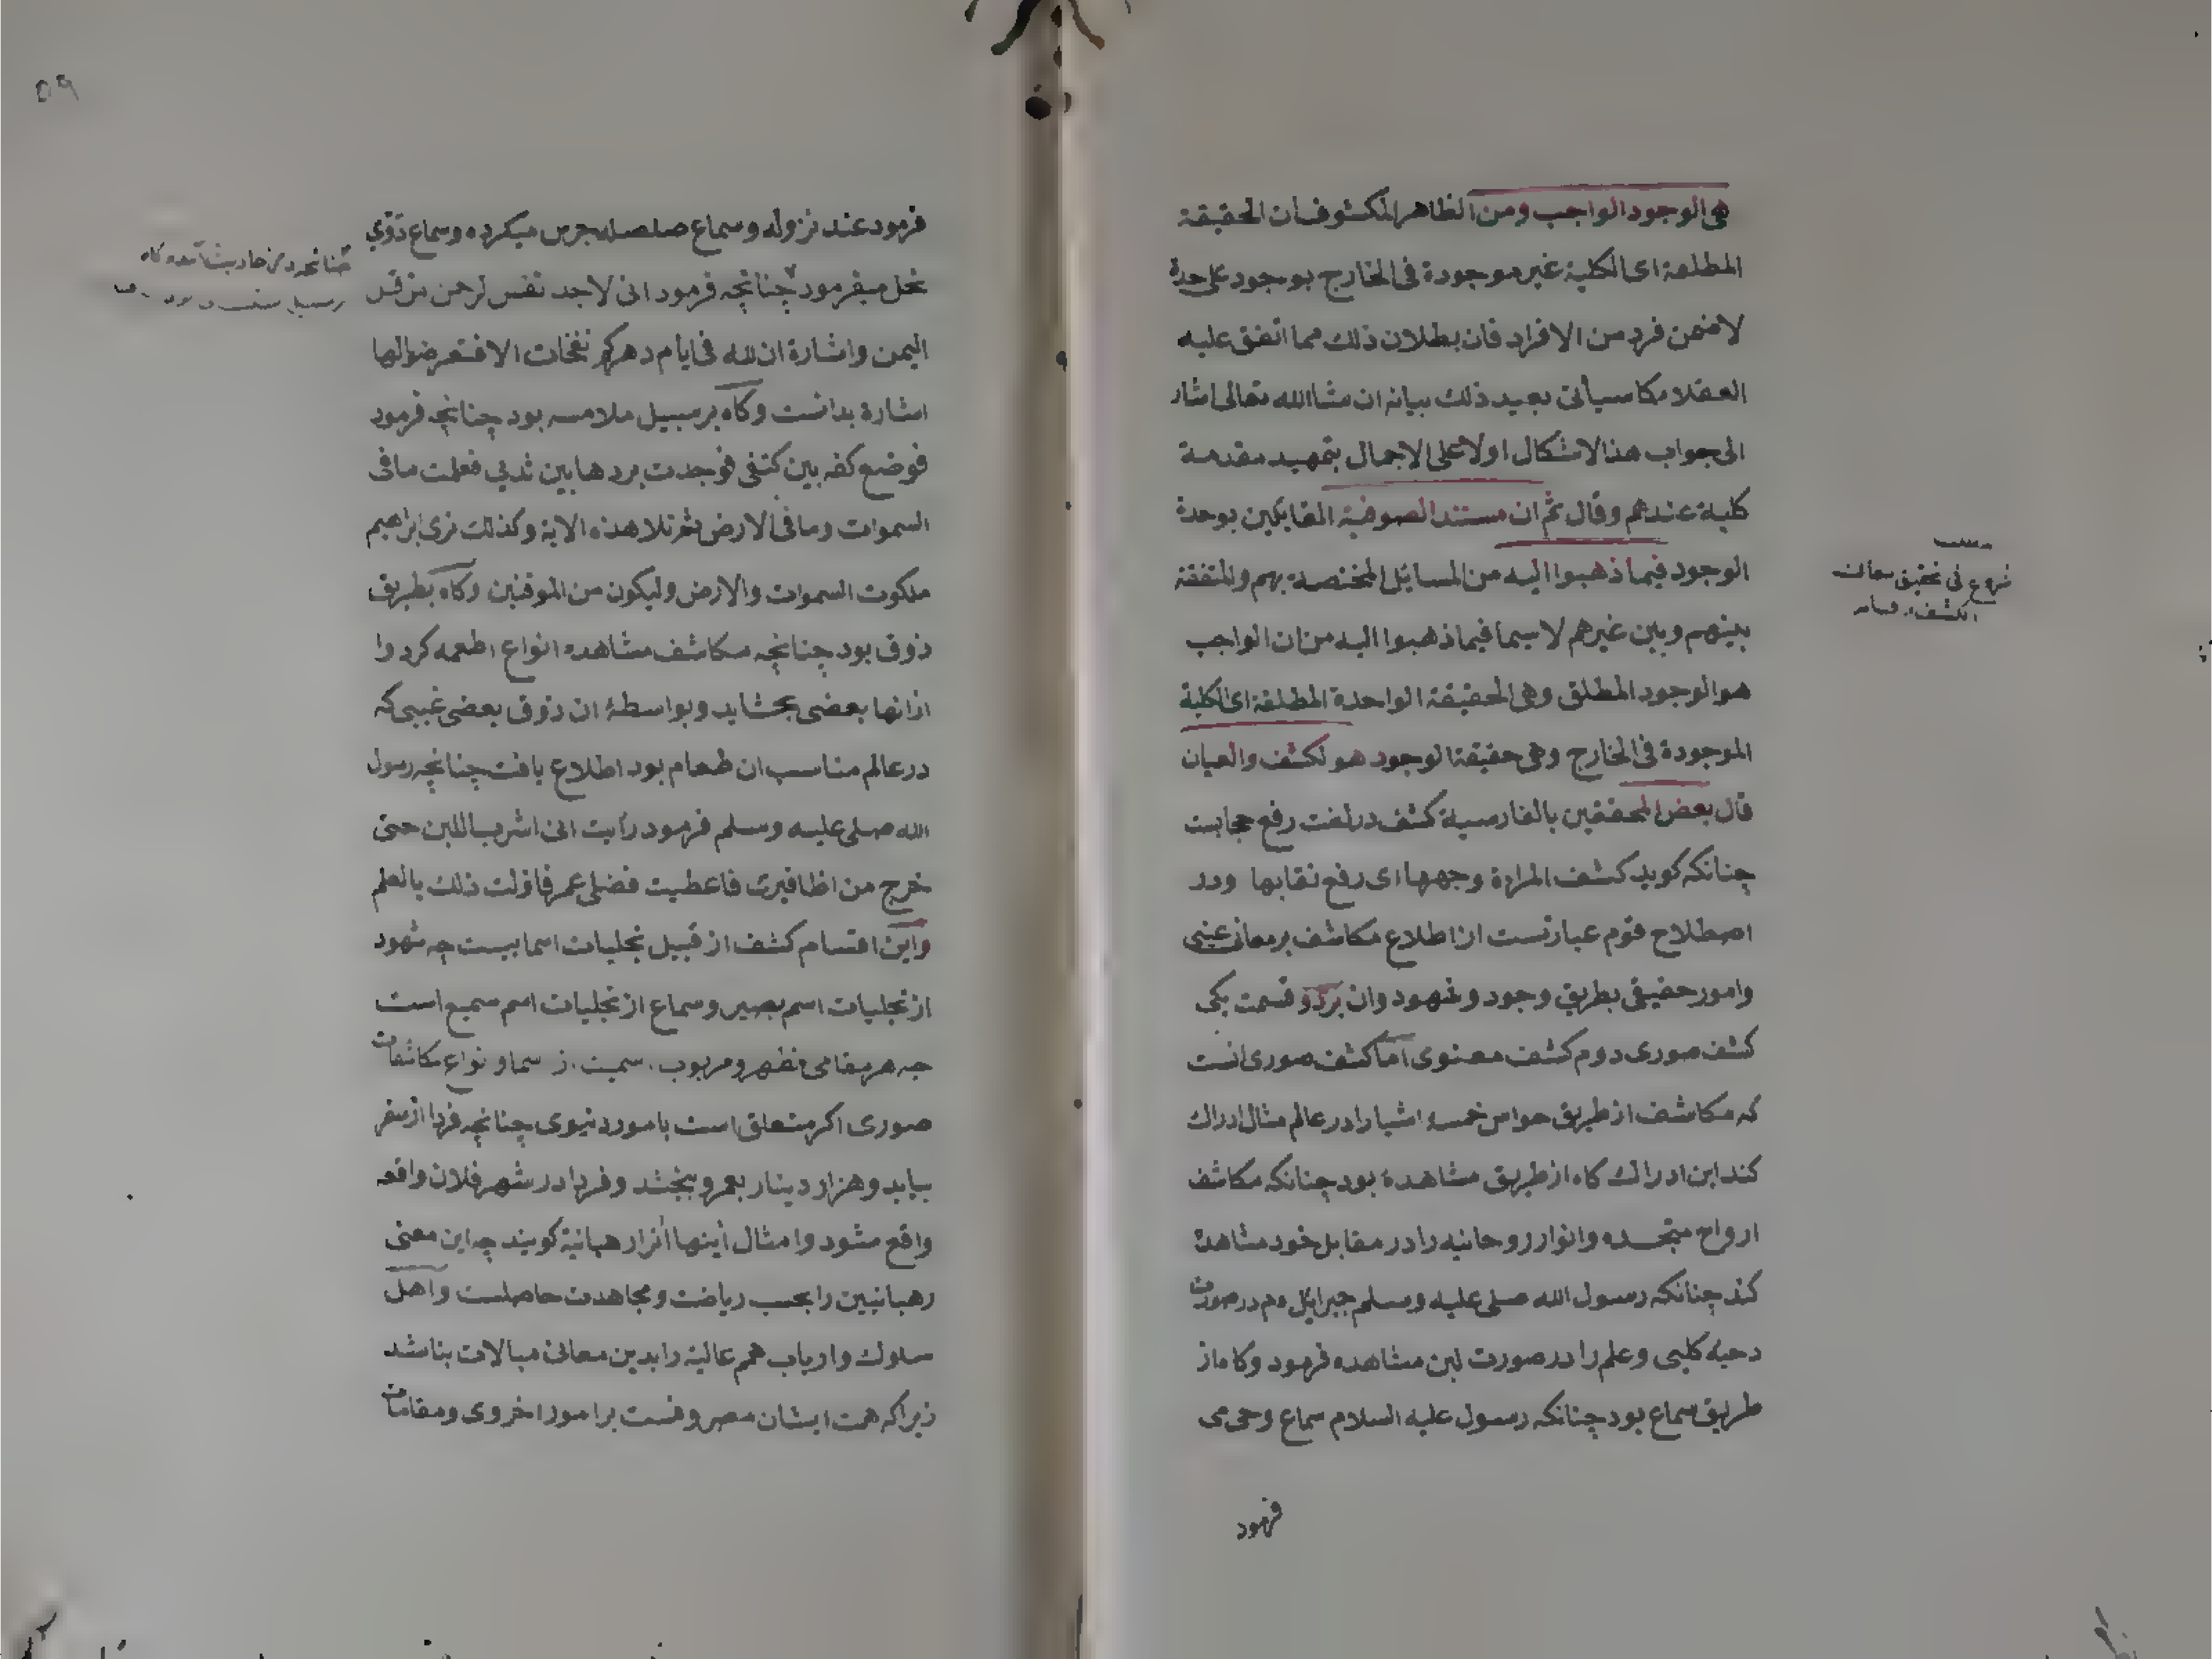 هى الوجود الواجب ومن الظاهر المكشوف ان الحقيقة
المطلقة اى الكلية غير موجودة فى الخارج بوجود على حدة
لا ضمن فرد من الافراد فان بطلان ذلك مما اتفق عليه
العقلاء كما سيأتى بعيد ذلك بيانه ان شاالله تعالى اشار
الى جواب هذا الاشكال اولا على الاجمال بتمهيد مقدمة
كلية عندهم وقال ثم ان مستند الصوفية القائلين بوحدة
الوجود فيما ذهبوا اليه من المسائل المختصة بهم والمتفقة
بينهم وبين غيرهم لا سيما فيما ذهبوا اليه من ان الواجب
هو الوجود المطلق وهى الحقيقة الواحدة المطلقة اى الكلية
الموجودة فى الخارج وهى حقيقة الوجود هو لكشف والعيان
قال بعض المحققين بالفارسية كشف در لغت رفع حجابست
چنانكه كويد كشف المراة وجهها اى رفع نقابها ودر
اصطلاح قوم عبارتست از اطلاع مكاشف بر معانى غيبى
وامور حقيقى بطريق وجود وشهود وان بر دو قسمت يكى
كشف صورى دوم كشف معنوى اما كشف صورى انست
كه مكاشف از طريق حواس خمسه اشيا را در عالم مثال ادراك
كند اين ادراك كاه از طريق مشاهدة بود چنانكه مكاشف
ارواح متجسده وانوار روحانيه را در مقابل خود مشاهدة
كند چنانكه رسول الله صلى عليه وسلم جبرائيل در صورت
دحية كلبى وعلم را در صورت لبن مشاهده فرمود وكاه از
طريق سماع بود چنانكه رسول عليه السلام سماع وحى مى
فرمود
شروع فى تحقيق معانى
الكشف
٥٩
فرمود عند نزوله وسماع صلصله جرس ميكرده وسماع دوى
نحل ميفرمود چنانچه فرمود انى لاجد نفس الرحمن من قبل
اليمن واشارة ان لله فى ايام دهركم نفخات الا فتعرضوا لها
اشارة بدانست وكاه بر سبيل ملامسه بود چنانچه فرمود
فوضع كفه بين كتفى فوجدت بردها بين ثديى فعلمت ما فى
السموات وما فى الارض ثم تلا هذه الاية وكذلك نرى ابراهيم
ملكوت السموات والارض وليكون من الموقنين وكاه بطريق
ذوق بود چنانچه مكاشف مشاهده انواع اطعمه كرد وا
از انها بعضى بچشايد وبواسطة ان ذوق بعضى غيبى كه
در عالم مناسب ان طعام بود اطلاع يافت چنانچه رسول
الله صلى عليه وسلم فرمود رأيت انى اشرب اللبن حتى
خرج من اظافيرى فاعطيت فضلى عمر فاولت ذلك بالعلم
واين اقسام كشف از قبيل تجليات اسماييست چه شهود
از تجليات اسم بصير وسماع از تجليات اسم سميع است
چه هر مقامى مظهر ومربوب اسميت از سما ونواع مكاشفات
صورى اكر متعلق است بامور دنيوى چنانچه فردا از سفر
بيايد وهزار دينار بعمرو بخشد وفردا در شهر فلان واقعه
واقع مشود وامثال اينها انرا رهبانية كويند چه اين معنى
رهبانيين را بحسب رياضت ومجاهدت حاصلست واهل
سلوك وارباب همم عالية را بدين معانى مبالات بناشد
زيرا كه همت ايشان مصروفست بر امور اخروى ومقامات